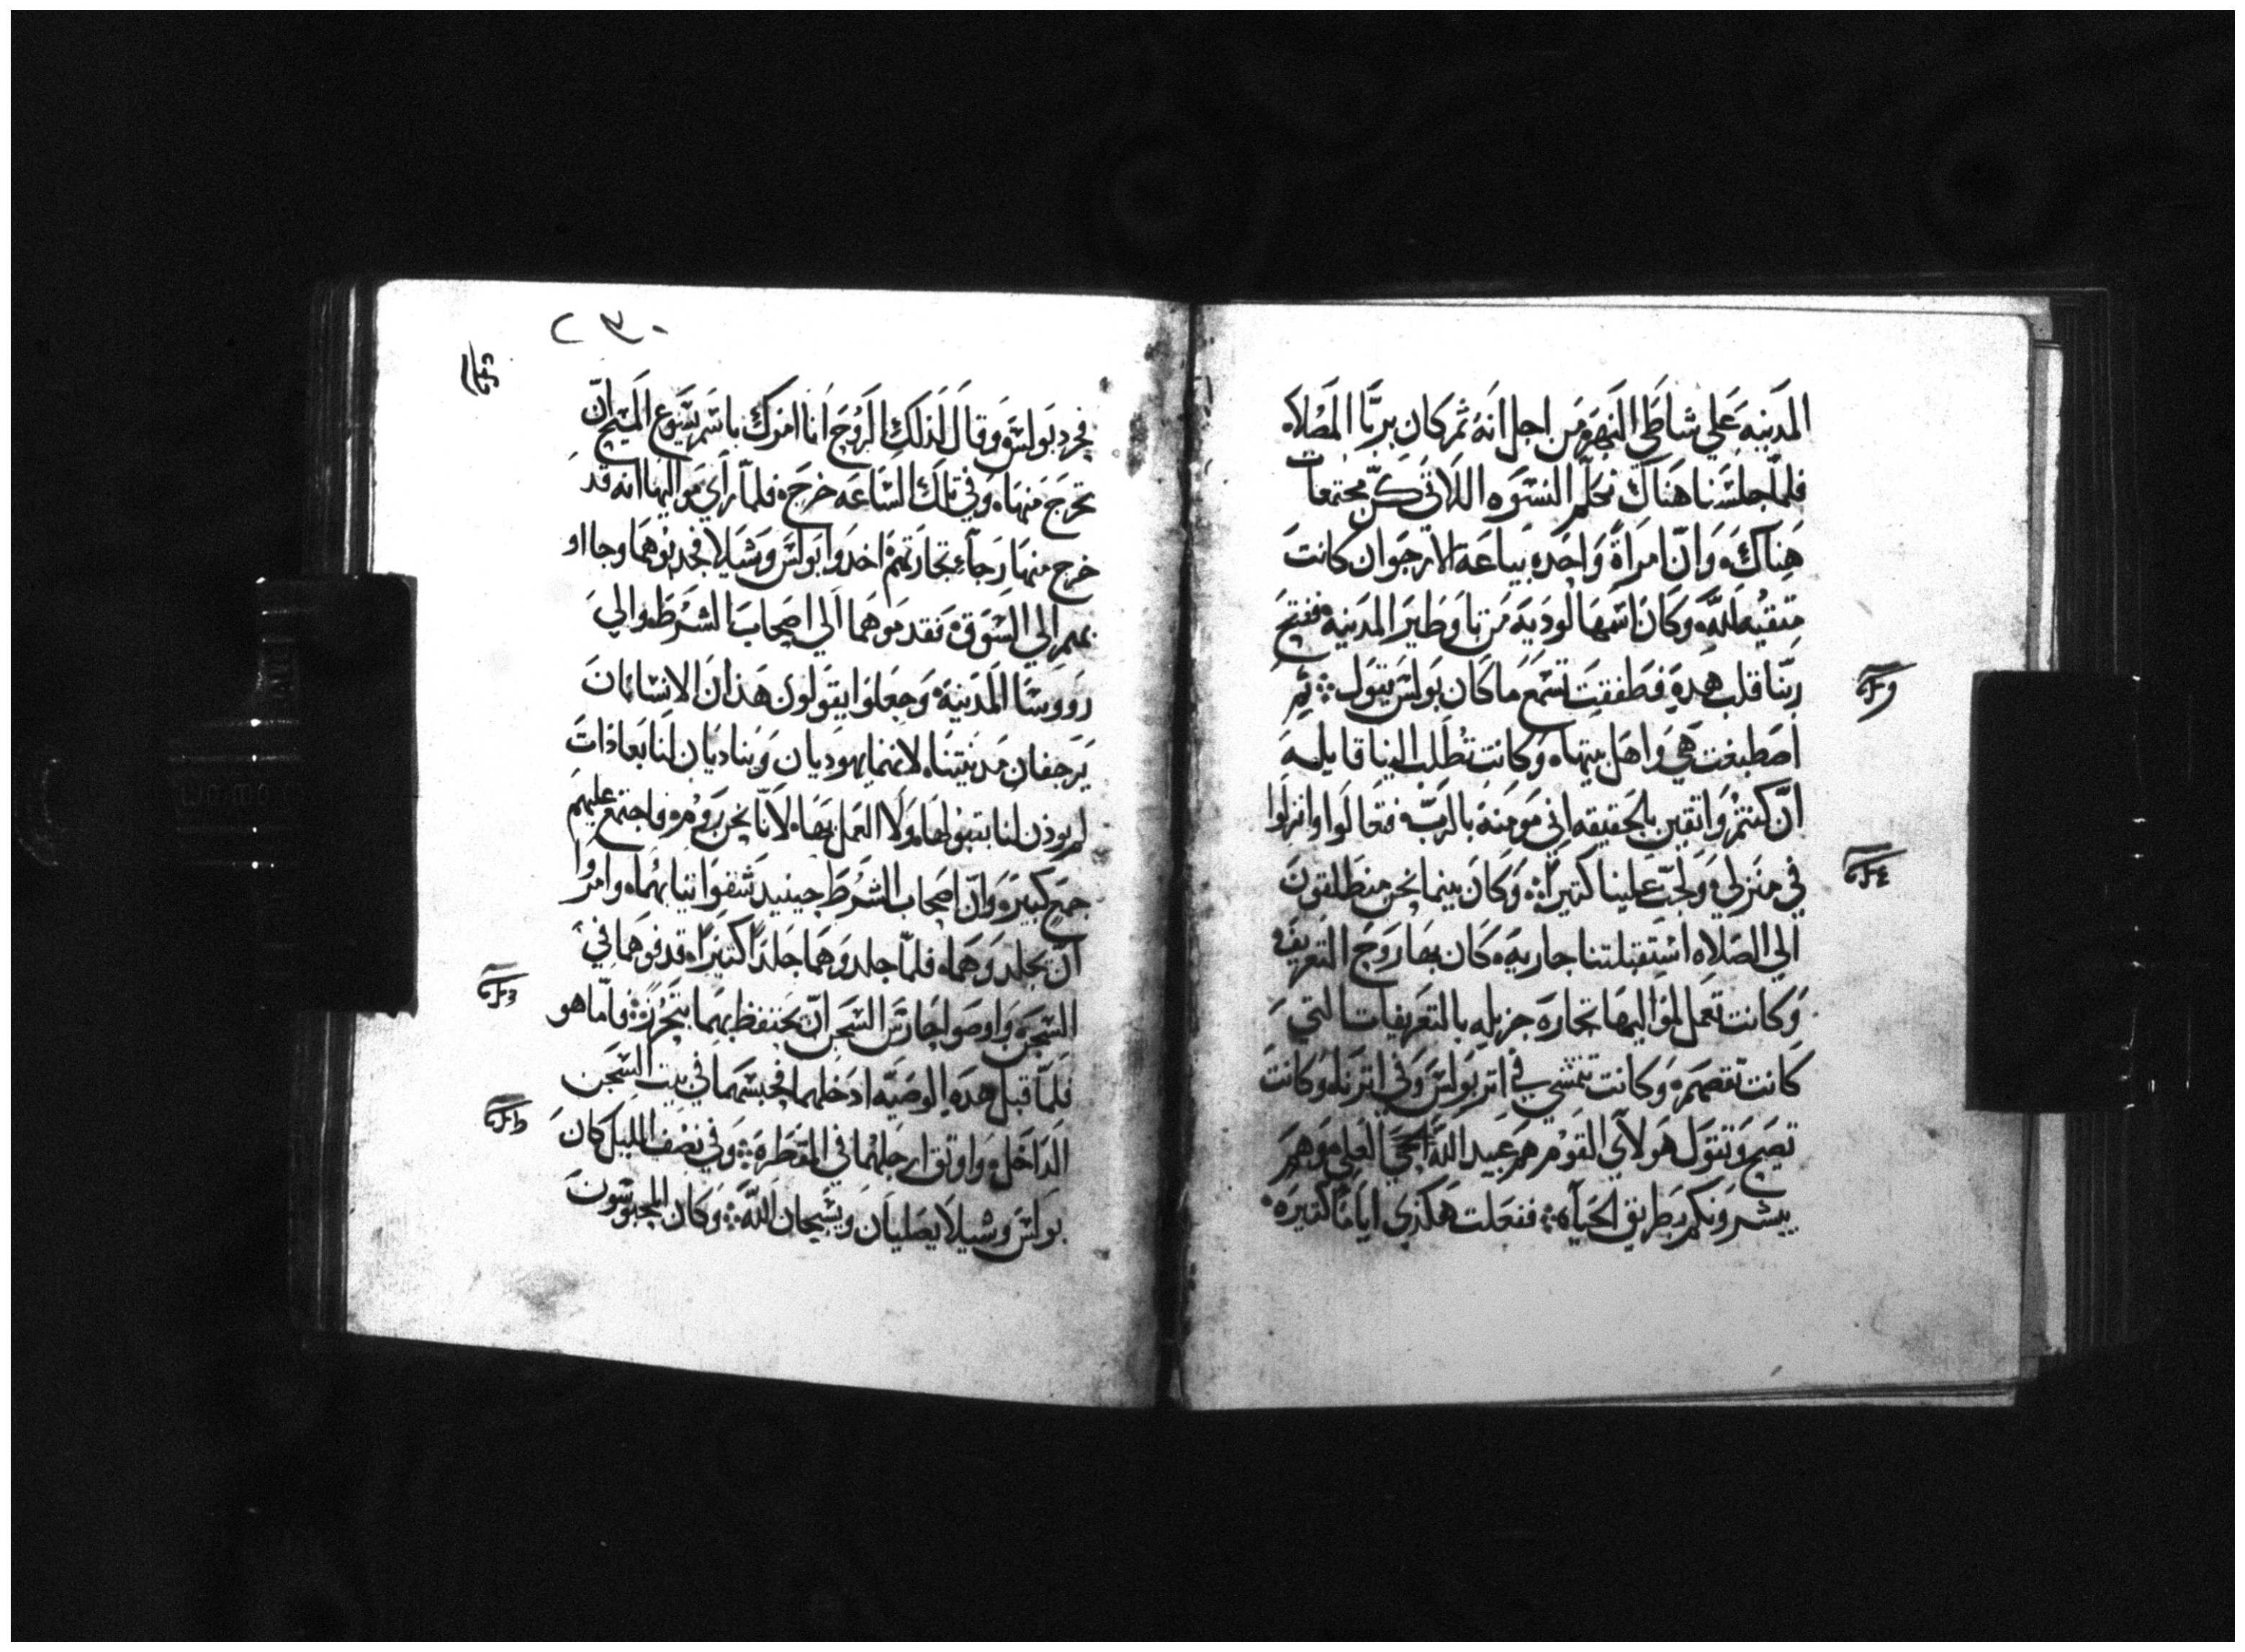 المدينه علي شاطي النهر. من اجل انه ثم كان يريا المصلاه
فلما جلسنا هناك نكلم النسوه اللاتي كن مجتمعات
هناك. وان امراة واحده بياعة الارجوان كانت
متقيه لله. وكان اسمها لوديه من تاوطير المدينه ففتح
ربنا قلب هده فطفقت تسمع ما كان بولس يقول ∴ ثم
اصطبغت هي واهل بيتها. وكانت تطلب الينا قايله
ان كنتم واتقين بالحقيقه اني مومنه بالرب فتعالوا وانزلوا
في منزلي. ولجت علينا كتيرا ∴ وكان بينما نحن منطلقون
الي الصلاه استقبلتنا جاريه. كان بها روح التعريف.
وكانت تعمل لمواليها تجاره جزيله بالتعريفات التي
كانت تقصهم. وكانت تمشي في اتر بولس وفي اترنا. وكانت
تصيح وتقول هولاي القوم هم عبيد الله الحي العلي. وهم
يبشرونكم بطريق الحياه ∴ ففعلت هكذي اياما كتيره.
٢٣٠
فحرد بولس وقال لذلك الروح انا امرك باسم يسوع المسيح ان
تخرج منها. وفي تلك الساعه خرج. فلما راي مواليها انه قد
خرج منها رجاء تجارتهم اخدوا بولس وشيلا فجدبوهما وجااو
بهم الي السوق. فقدموهما الي اصحاب الشرط. والي
رووسا المدينه. وجعلوا يقولون هذان الانسانان
يرجفان مدينتنا. لانهما يهوديان ويناديان لنا بعاذات
لم يوذن لنا بقبولها. ولا العمل بها. لانا نحن روم. فاجتمع عليهم
جمع كبير. وان اصحاب الشرط حينيد شقوا تيابهما. وامروا
ان يجلدوهما. فلما جلدوهما جلدا كتيرا. قدفوهما في
السجن. واوصوا حارس السجن ان يحتفظ بهما بتحرز ∴ فاما هو
فلما قبل هده الوصيه ادخلهما فحبسهما في بيت السجن
الداخل. واوتق ارجلهما في المقطره ∴ وفي نصف الليل كان
بولس وشيلا يصليان ويسبحان الله ∴ وكان المحبوسون